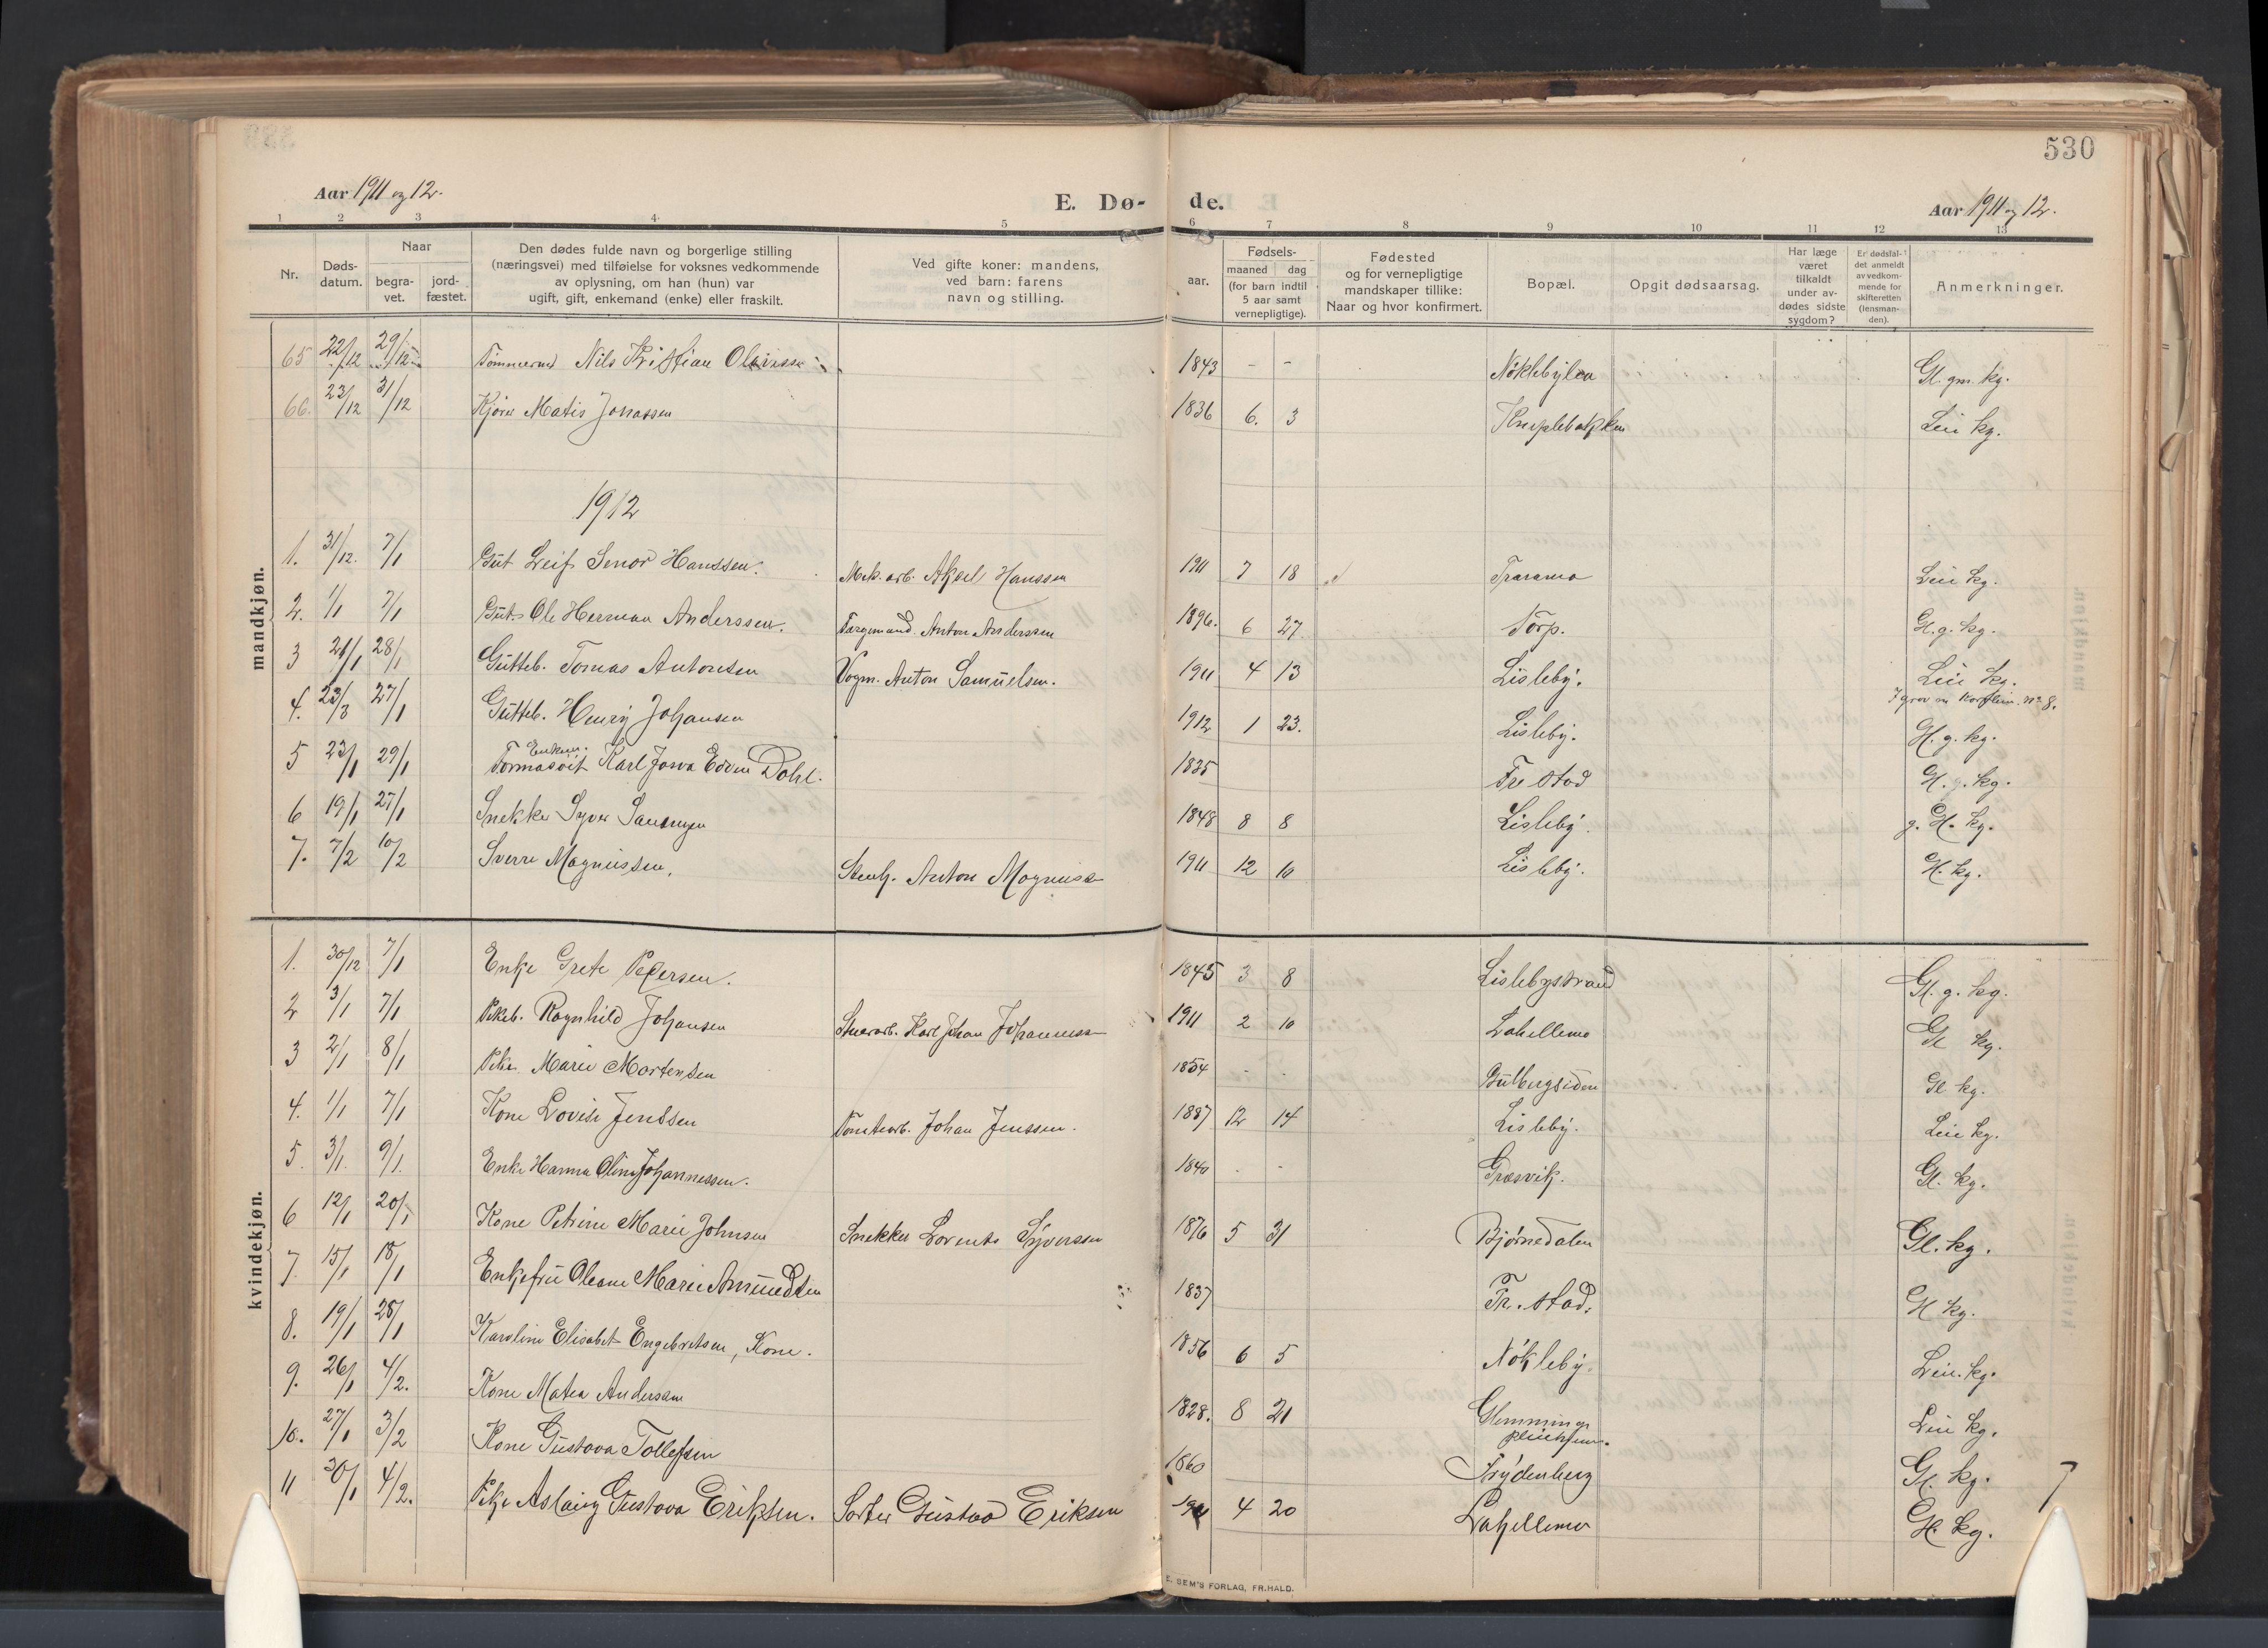 530
Aar 1911 og 12.
E. Dø- de.
Aar 1911 og 12.
1 2 3 4 5 6 7 8 9 10 11 12 13
Nr.
Døds-
datum.
Naar
begra-
vet.
jord-
fæstet.
Den dødes fulde navn og borgerlige stilling
(næringsvei) med tilføielse for voksnes vedkommende
av oplysning, om han (hun) var
ugift, gift, enkemand (enke) eller fraskilt.
Ved gifte koner: mandens,
ved barn: farens
navn og stilling.
aar.
Fødsels-
maaned dag
(for barn indtil
5 aar samt
vernepligtige).
Fødested
og for vernepligtige
mandskaper tillike:
Naar og hvor konfirmert.
Bopæl.
Opgit dødsaarsag.
Har læge
været
tilkaldt
under av-
dødes sidste
sygdom?
Er dødsfal-
det anmeldt
av vedkom-
mende for
skifteretten
(lensman-
den).
Anmerkninger.
mandkjøn.
65 22/12 29/12 Tømmerm Nils Kristian 1843 - - Nøklebylen Gl. gm. kg.
66. 23/12 31/12 Kjører Matis Jonassen 1836 6. 3 Leie kg.
1912
1. 31/12. 7/1 Gut Leif Senor Hanssen. Mek. arb. Aksel Hanssen 1911 7 18 Traramo Leie kg.
2. 1/1 7/1 Gut Ole Herman Anderssen. Færgemand. Anton Anderssen 1896. 6 27 Torp. Gl. g. kg.
3 21/1 28/1 Gutteb. Tomas Antonsen Vogm. Anton Samuelsen. 1911 4 13 Lisleby. Leie kg.
4. 23/3 27/1 Gutteb. Henry Johansen 1912 1 23. Lisleby. Gl. g. kg.
5 23/1 29/1 Enkem. Karl Edvin Dahl. 1835 Fr stad Gl. g. kg.
6 19/1 27/1 Snekker Syver 1848 8 8 Lisleby. g. Gl. kg.
7. 7/2 10/2 Sverre Magnussen. Stenh. Anton Magnuss 1911 12 10 Lisleby. Gl. kg.
kvindekjøn.
1. 30/12 7/1 Enke Grete Pedersen. 1845 3 8 Lislebystrand Gl. g. kg.
2 3/1 7/1 Pikeb. Ragnhild Johansen Stenarb. Karl Johan Johanness 1911 2 10 Lahellemo Gl kg.
3 2/1 8/1 Pike Marie Mortensen 1854 - - Gulbergsiden Gl kg.
4. 1/1 7/1 Kone Lovise Jenssen Tomtearb. Johan Jenssen. 1887 12 14 Lisleby. Leie kg.
5. 3/1. 9/1. Enke Hanna Oline Johannessen. 1840 - - Græsvik. Gl. kg.
6 12/1 20/1 Kone Petrine Marie Johnsen Snekker Lorents Syverssen 1876 5 31 Bjørnedalen Gl. kg.
7. 15/1 18/1 Enkefru Oleane Marie Amundsen 1837 Fr. stad. Gl kg.
8. 19/1 28/1 Karoline Elisabet Engebretsen, Kone. 1856 6 5 Nøkleby. Leie. kg.
9. 26/1 4/2. Kone Matea Anderssen 1828. 8 21 Glemminge pleiehjem. Leie kg.
10. 27/1 3/2 Kone Gustava Tollefsen 1860 Frydenberg Gl. kg.
11 30/1 4/2. Pike Aslaug Gustava Eriksen. Sorter Gustav Eriksen 1911 4 20 Lahellemo Gl. kg.
E. SEM'S FORLAG, FR.HALD.